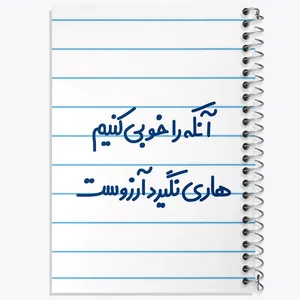 آنگه را خوبی کنیم
هاری نگیرد آرزوست